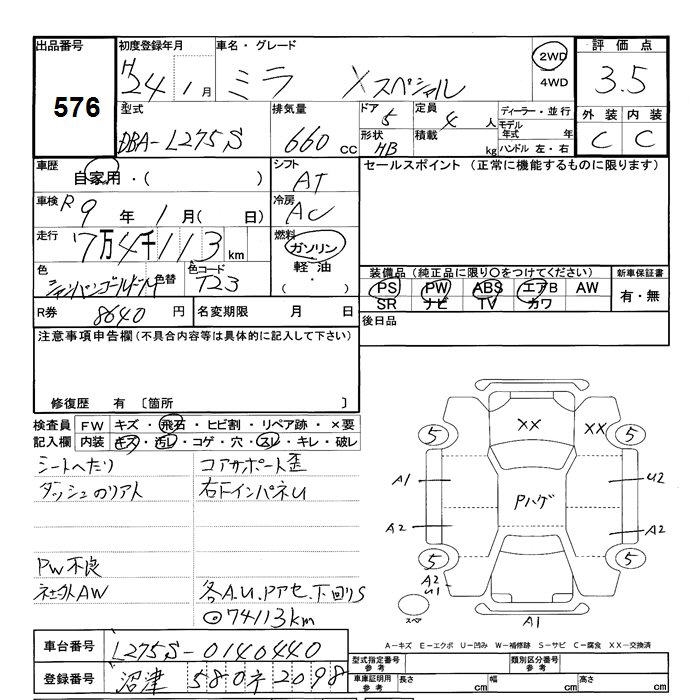 出品番号
576
初度登録年月
H 24 1 月
車名・グレード
ミラ Xスペシャル
2WD
4WD
評価点
3.5
外装 内装
C C
型式
DBA-L275S
排気量
660 cc
ドア 5
形状 HB
定員 4 人
積載 kg
ディーラー・並行
モデル年式 年
ハンドル 左・右
車歴
自家用・( )
シフト
AT
セールスポイント (正常に機能するものに限ります)
車検 R 9 年 1 月( 日)
冷房
AC
走行 7万4千113 km
燃料
ガソリン
軽油
( ・ )
色
シャンパンゴールドM
色替
色コード
T23
装備品(純正品に限り○をつけてください)
PS PW ABS エアB AW
SR ナビ TV カワ
新車保証書
有・無
R券 8640 円
名変期限 月 日
後日品
注意事項申告欄(不具合内容等は具体的に記入して下さい)
修復歴 有 〔箇所 〕
検査員記入欄
FW キズ・飛石・ヒビ割・リペア跡・×要
内装 キズ・汚レ・コゲ・穴・スレ・キレ・破レ
シートへたり
コアサポート歪
ダッシュのリアト
右下インパネU
PW不良
社外AW
各A.U.Pアセ.下回りS
◎74113km
XX XX
5 5
A1 U2
Pハゲ
A2 A2
5 5
A2
U1
スペア
A1
A-キズ E-エクボ U-凹み W-補修跡 S-サビ C-腐食 XX-交換済
車台番号 L275S-0140440
登録番号 沼津 580 ネ 2098
型式指定番号 参考
類別区分番号 参考
車庫証明用 参考
長さ cm
幅 cm
高さ cm